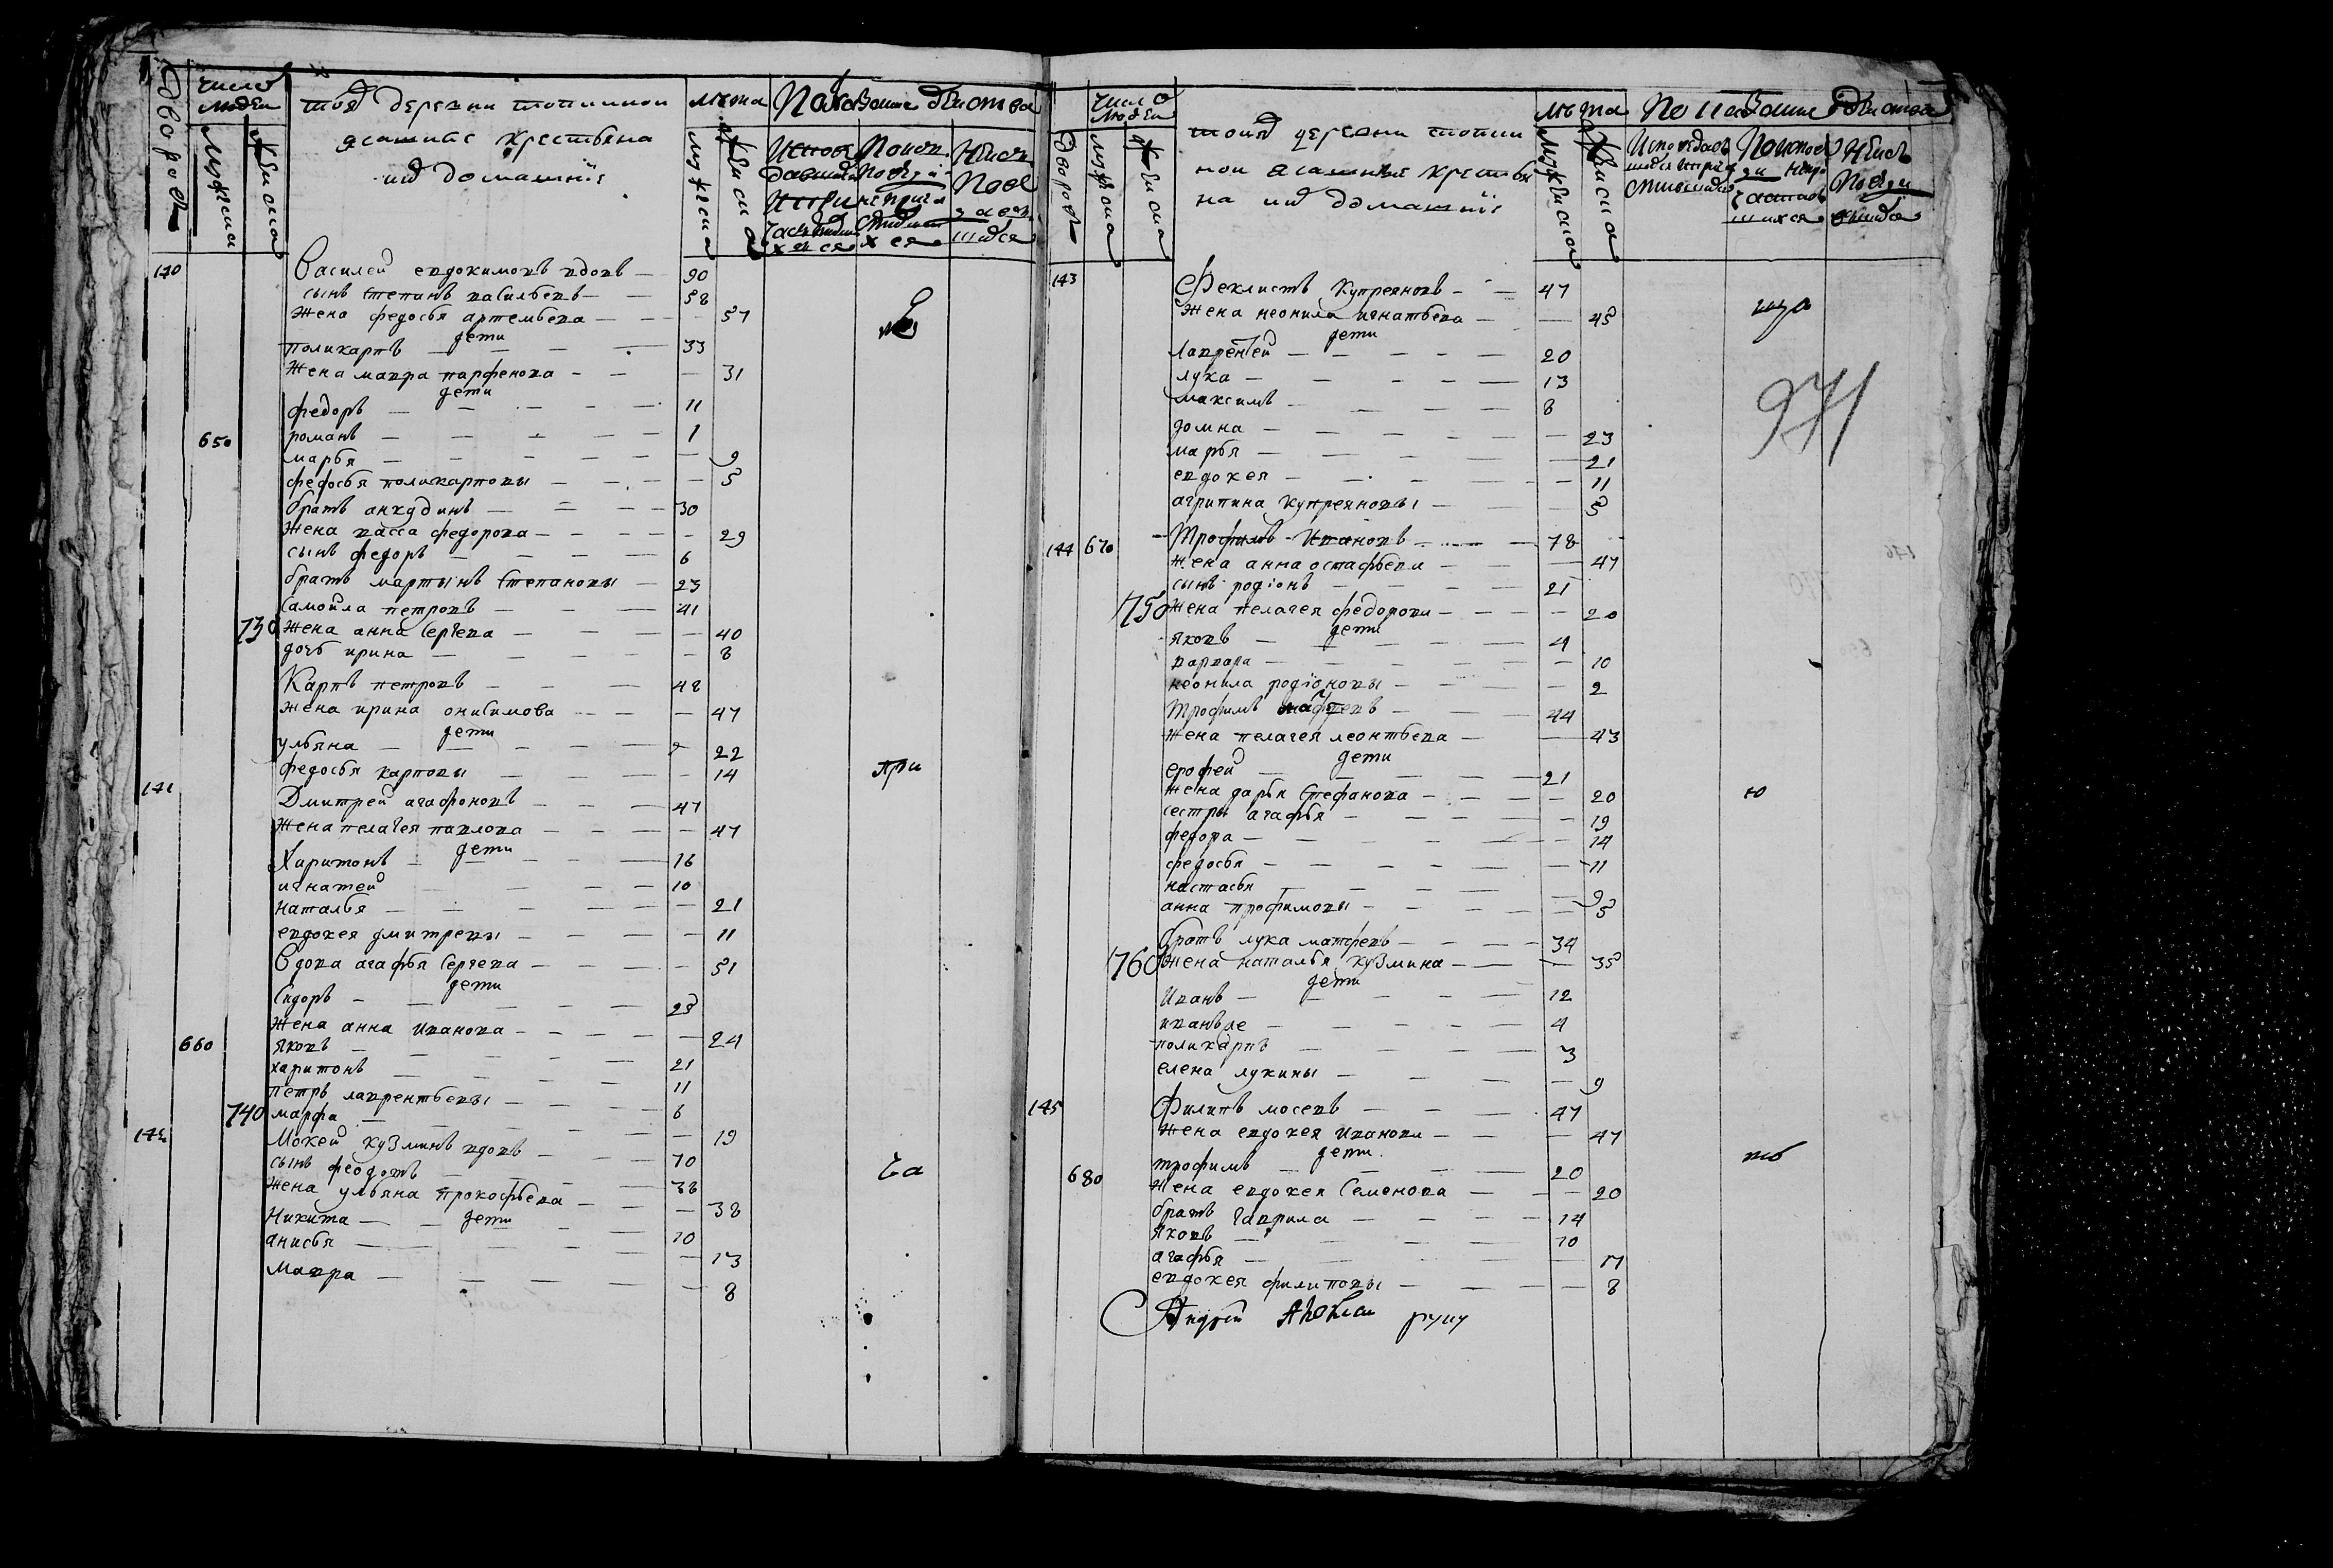 число людеи
дворовъ
мужеска
женска
тояж деревни топилнои
ясашные крестьяна
их домашнїе
лѣта
мужеска
женска
Показание действа
140
Василеи евдокимовъ вдовъ 90
сынъ степанъ васильевъ 58
жена федосья артемьева 57
дети
поликарпъ 33
жена мавра парфенова 31
дети
федоръ 11
650 романъ 1
марья 9
федосья поликарповы 5
братъ анкудинъ 30
жена васса федорова 29
сынъ федоръ 6
братъ мартынъ степановы 23
самоила петровъ 41
730 жена анна сергева 40
дочь ирина 8
Карпъ петровъ 48
жена ирина онисимова 47
дети
ульяна 22
федосья карповы 14
при
141
Дмитреи агафоновъ 47
жена пелагея павлова 47
дети
Харитонъ 16
игнатеи 10
наталья 21
евдокея дмитревы 11
Вдова агафья сергева 51
дети
Сидоръ 25
жена анна иванова 24
660 яковъ 21
харитонъ 11
петръ лаврентьевы 6
740 марфа 19
142 Мокеи кузминъ вдовъ 70
сынъ феодотъ 38
жена ульяна прокофьева 38
ча
дети
Никита 10
анисья 13
Мавра 8
число людеи
дворовъ
мужеска
женска
тояж деревни топил
нои ясашные крестья
на их домашнїе
лѣта
мужеска
женска
Показание действа
143
Феклистъ Купреяновъ 47
жена неонила игнатьева 45
дети
лаврентеи 20
лука 13
максимъ 8
971
домна 23
марья 21
евдокея 11
агрипина купреяновы 5
144 670 Трофимъ Ивановъ 78
жена анна остафьева 47
сынъ родїонъ 21
750 жена пелагея федорова 20
дети
яковъ 4
варвара 10
неонила родїоновы 2
Трофимъ матфевъ 44
жена пелагея леонтьева 43
дети
ерофеи 21
жена дарья стефанова 20
ю
сестры агафья 19
федора 14
федосья 11
настасья 9
анна трофимовы 5
братъ лука матфевъ 34
760 жена наталья кузмина 35
дети
Иванъ 12
иванъ же 4
поликарпъ 3
елена лукины 9
145 Филипъ мосевъ 47
жена евдокея иванова 47
дети
680 трофимъ 20
жена евдокея семенова 20
братъ гаврила 14
яковъ 10
агафья 17
евдокея филиповы 8
Андреи руку